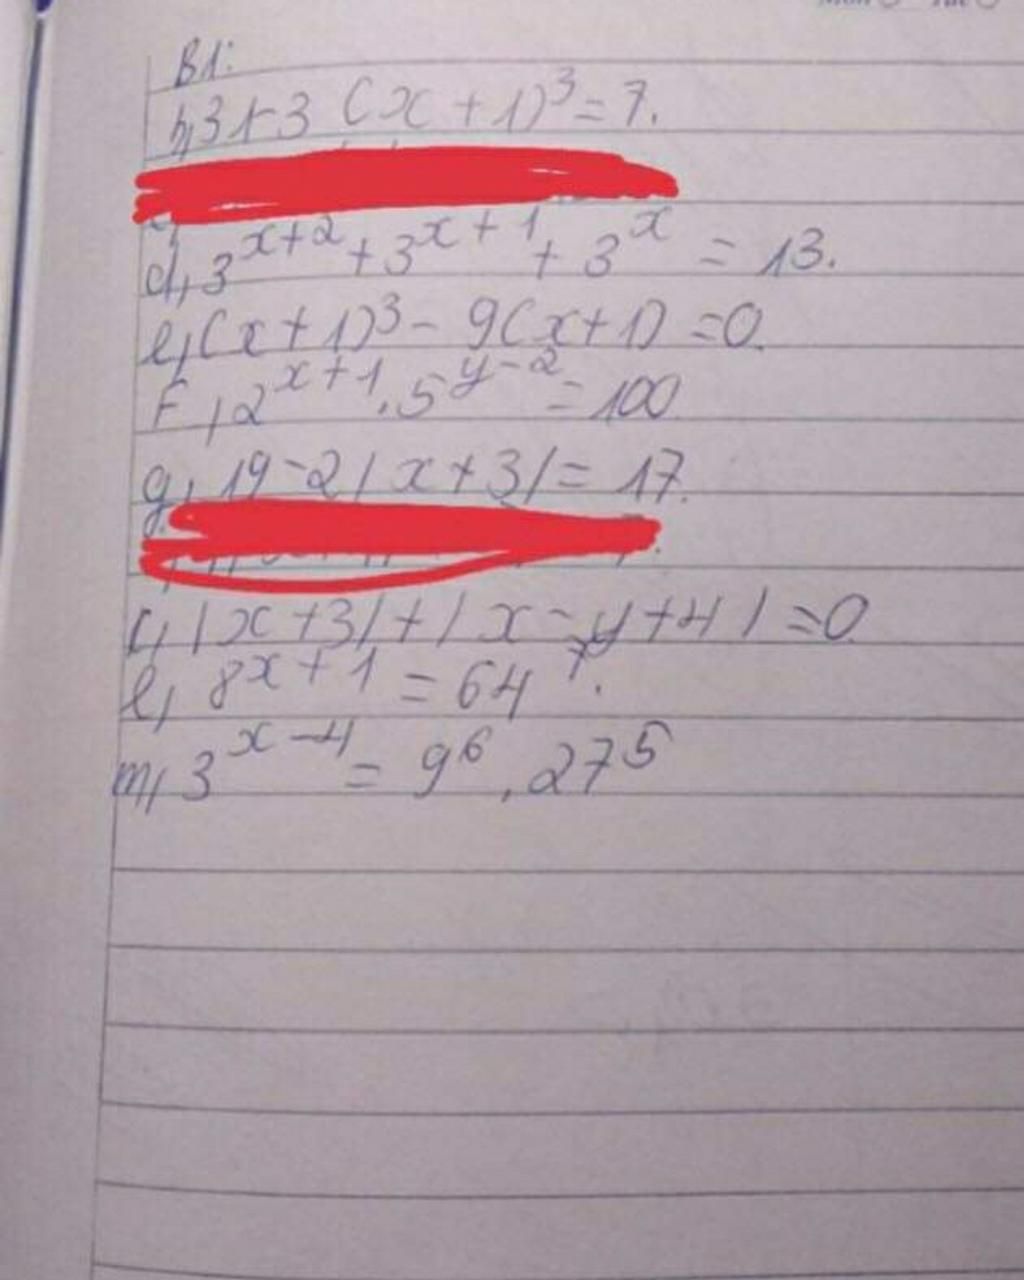 B1:
b, 31-3 (x+1)³=7.
d, 3^{x+2}+3^{x+1}+3^x = 13.
e, (x+1)³-9(x+1)=0.
F, 2^{x+1}.5^{y-2}=100
g, 19-2|x+3|=17.
i, |x+3|+|x-y+4|=0
l, 8^{x+1}=64^7.
m, 3^{x-4}=9⁶.27⁵